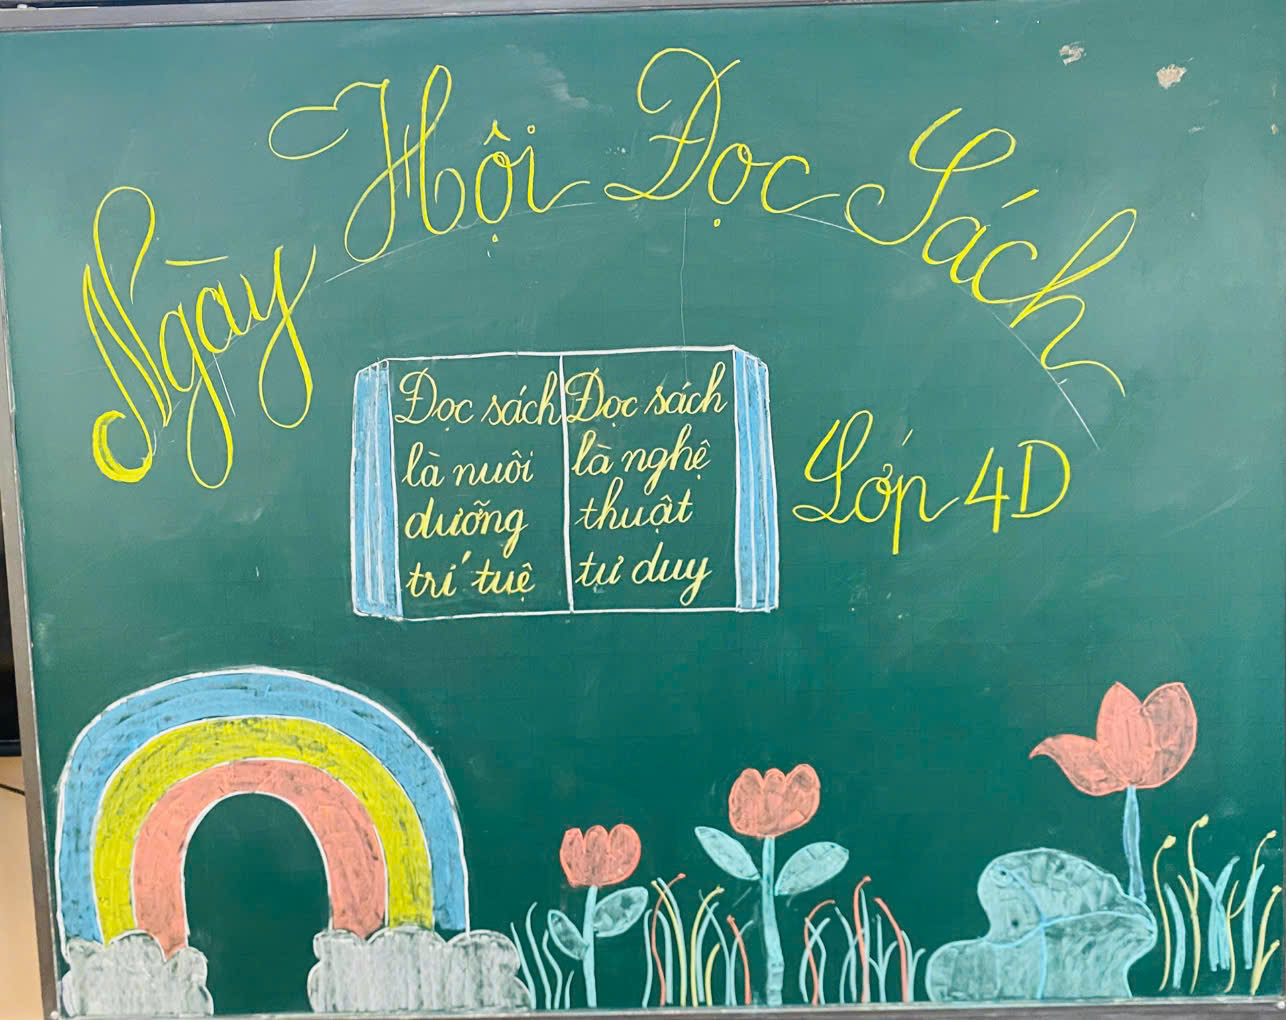 Ngày Hội Đọc Sách
Đọc sách
là nuôi
dưỡng
trí tuệ
Đọc sách
là nghệ
thuật
tư duy
Lớp 4D